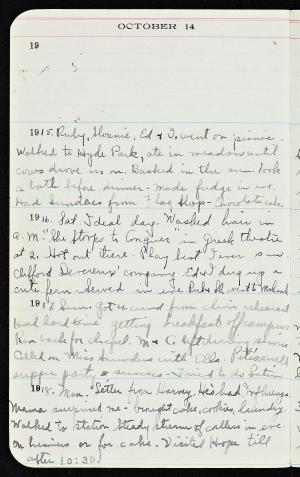 OCTOBER 14
19
1915. Ruby, Ed & I went on picnic.
Walked to Hyde Park, ate in meadow until
cows drove us on. Basked in the sun. Took
a bath before dinner. Made fudge in eve.
Had Sundaes from Flag Shop - Chocolate cake
1916. Sat. Ideal day. Washed hair in
a.m. "She Stoops to Conquer" in Greek theatre
at 2. Hot out there. Play best I ever saw.
Clifford Devereux' company. Ed & I dug up a
cute fern. Served in eve.
1917. Sun.
Had hard time getting breakfast off campus
Ran back for chapel. M & C left during service
Called on Miss Saunders with
supper party a success - Tried to do Latin
1918. Mon. Letter from Harvey. He's had Influenza.
Mama surprised me - brought cake, cookies, laundry.
Walked to station. Steady stream of callers in eve.
on business or for cake. Visited Hope till
after 10:30.